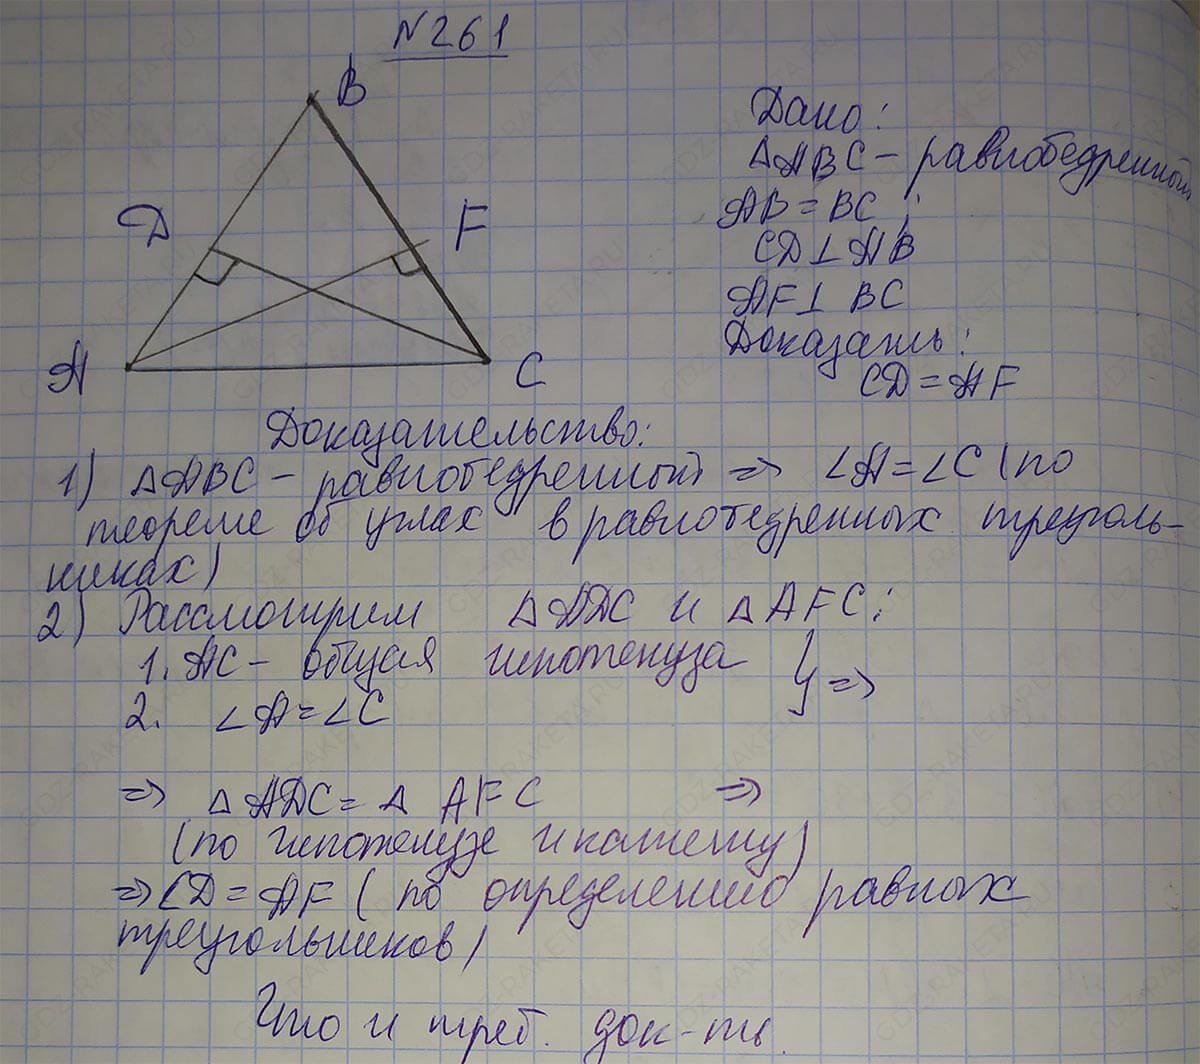 N261
B
D
F
A
C
Дано:
△ABC - равнобедренный
AB = BC
CD ⊥ AB
AF ⊥ BC
Доказать:
CD = AF
Доказательство:
1) △ABC - равнобедренный => ∠A = ∠C (по
теореме об углах в равнобедренных треуголь-
никах)
2) Рассмотрим △ADC и △AFC:
1. AC - общая гипотенуза } =>
2. ∠A = ∠C
=> △ADC = △AFC =>
(по гипотенузе и катету)
=> CD = AF (по определению равных
треугольников)
Что и треб. док-ть.
GDZ-RAKETA.RU